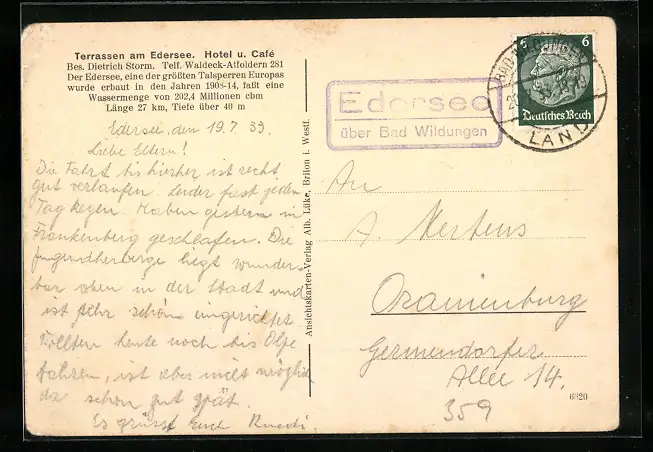 Terrassen am Edersee. Hotel u. Café
Bes. Dietrich Storm. Telf. Waldeck-Alfoldern 281
Der Edersee, eine der größten Talsperren Europas
wurde erbaut in den Jahren 1908-14, faßt eine
Wassermenge von 202,4 Millionen cbm
Länge 27 km, Tiefe über 40 m
Edersee, den 19.7.39.
Liebe Eltern!
Die Fahrt bis hierher ist recht
gut verlaufen. Leider fast jeden
Tag Regen. Haben gestern in
Frankenberg geschlafen. Die
Jugendherberge liegt wunder-
bar oben in der Stadt und
ist sehr schön eingerichtet
Wollten heute noch bis Olpe
fahren, ist aber nicht möglich
da schon gut spät.
Es grüsst Euch
Ansichtskarten-Verlag Alb. Lüke, Brilon i. Westf.
Edersee
über Bad Wildungen
6 6
Deutsches Reich
BAD WILDUNGEN
LAND
An
A. Mertens
Oranienburg
Germendorfer
Allee 14.
359
6820